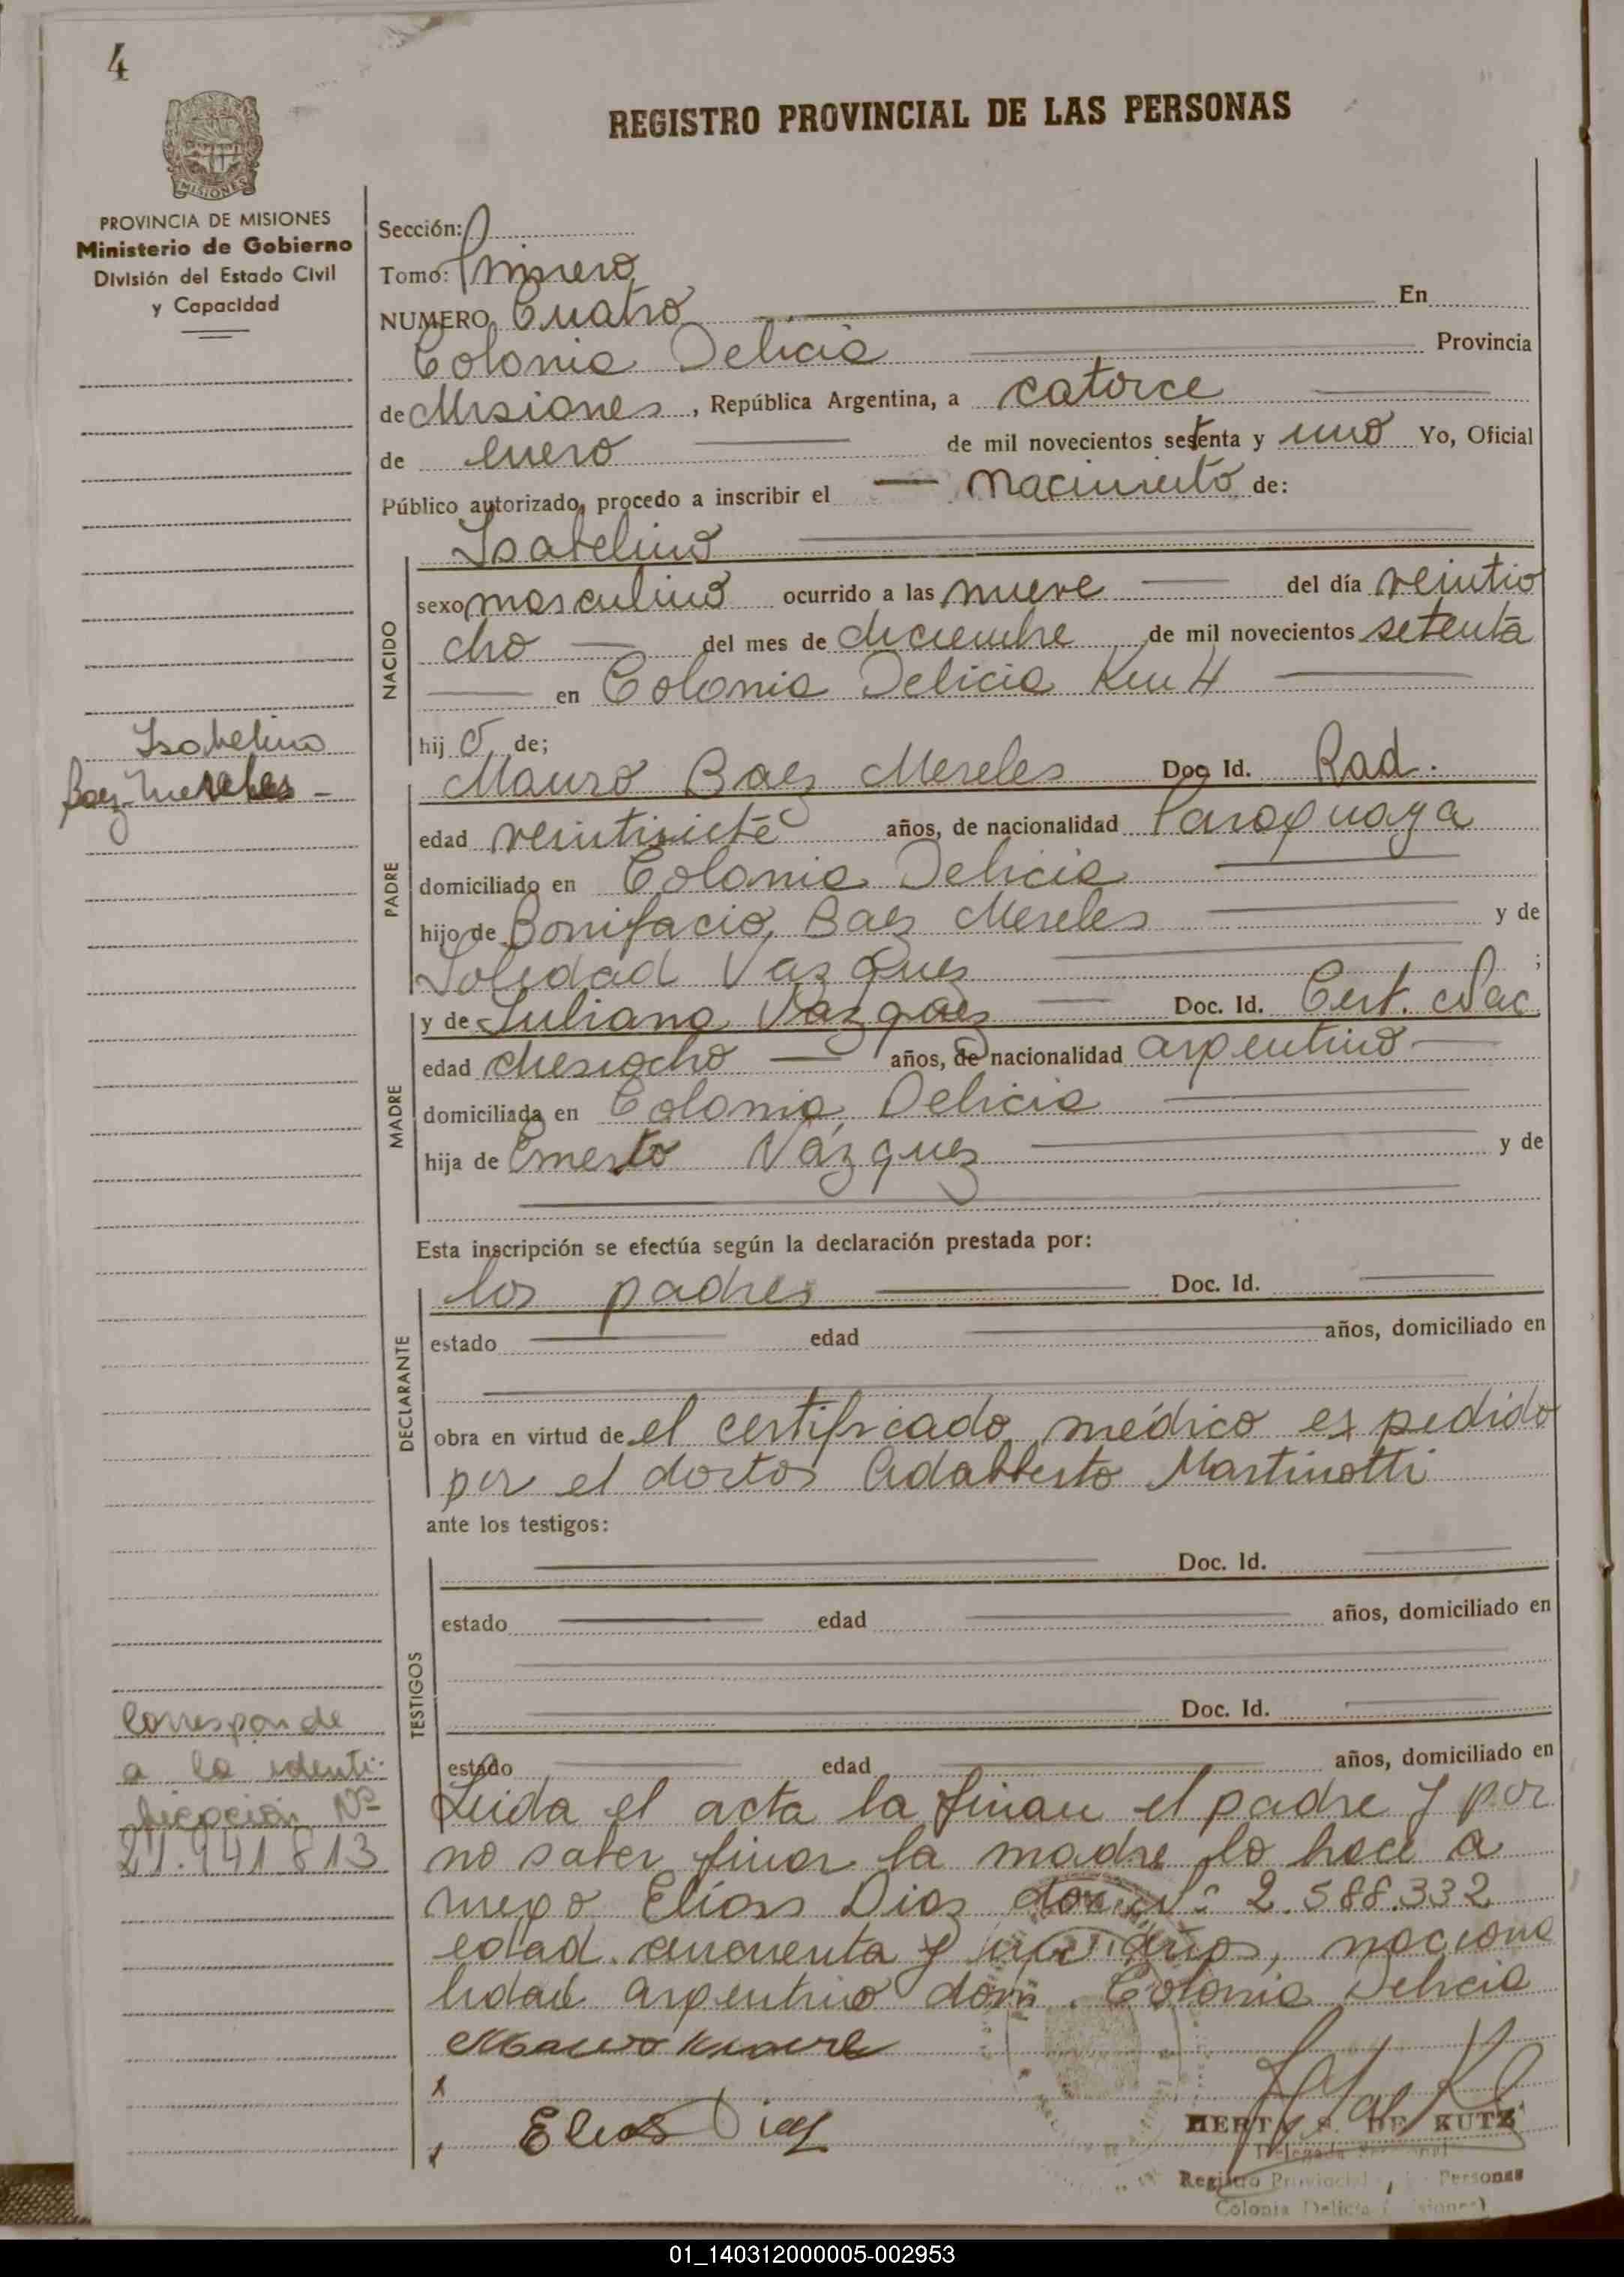 4
REGISTRO PROVINCIAL DE LAS PERSONAS
MISIONES
PROVINCIA DE MISIONES
Ministerio de Gobierno
División del Estado Civil
y Capacidad
Sección:
Tomo: Primero
NUMERO Cuatro En
Colonia Delicia Provincia
de Misiones, República Argentina, a catorce
de enero de mil novecientos setenta y uno Yo, Oficial
Público autorizado, procedo a inscribir el nacimiento de:
Isabelino
NACIDO
sexo masculino ocurrido a las nueve del día veintio
cho del mes de diciembre de mil novecientos setenta
en Colonia Delicia Km 4
hijo de;
Isabelino
Baez Mereles
PADRE
Mauro Baez Mereles Doc Id. Rad.
edad veintisiete años, de nacionalidad Paraguaya
domiciliado en Colonia Delicia
hijo de Bonifacio Baez Mereles y de
Soledad Vazquez ;
MADRE
y de Juliana Vazquez Doc. Id. Cert. Nac.
edad diesiocho años, de nacionalidad argentino
domiciliada en Colonia Delicia
hija de Ernesto Vázquez y de
Esta inscripción se efectúa según la declaración prestada por:
DECLARANTE
los padres Doc. Id.
estado edad años, domiciliado en
obra en virtud de el certificado médico expedido
por el doctor Adalberto Martinotti
ante los testigos:
TESTIGOS
Doc. Id.
estado edad años, domiciliado en
Doc. Id.
estado edad años, domiciliado en
Corresponde
a la identi-
ficación Nº
21.941.813
Leida el acta la firman el padre y por
no saber firmar la madre lo hace a
ruego Elías Diaz doc. Nº 2.588.332
edad cincuenta y años, naciona
lidad argentino dom. Colonia Delicia
Elias Diaz
HERTA S. DE KUTZ
Delegada
Registro Provincial Personas
Colonia Delicia
01_140312000005-002953